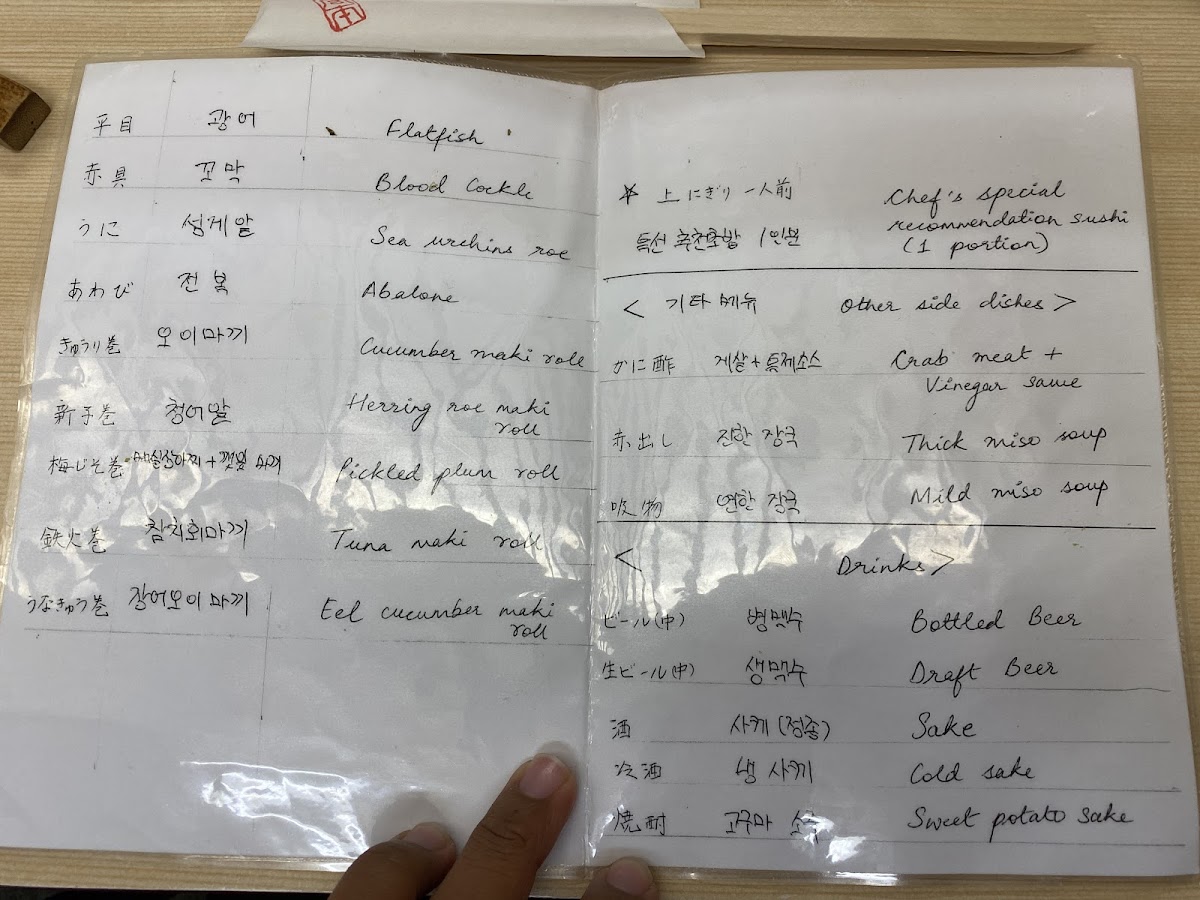 平目 광어 Flatfish
赤具 꼬막 Blood Cockle
うに 성게알 Sea urchins roe
あわび 전복 Abalone
きゅうり巻 오이마끼 Cucumber maki roll
新子巻 청어알 Herring roe maki
roll
梅じそ巻 매실장아찌+깻잎 마끼 Pickled plum roll
鉄火巻 참치회마끼 Tuna maki roll
うなきゅう巻 장어오이마끼 Eel cucumber maki
roll
上にぎり 一人前 Chef's special
recommendation sushi
특선 추천초밥 1인분 (1 portion)
< 기타메뉴 Other side dishes >
かに酢 게살+특제소스 Crab meat +
Vinegar sauce
赤出し 진한 장국 Thick miso soup
吸物 연한 장국 Mild miso soup
< Drinks >
ビール(中) 병맥수 Bottled Beer
生ビール(中) 생맥수 Draft Beer
酒 사케(정종) Sake
冷酒 냉사케 Cold sake
焼酎 고구마 소주 Sweet potato sake